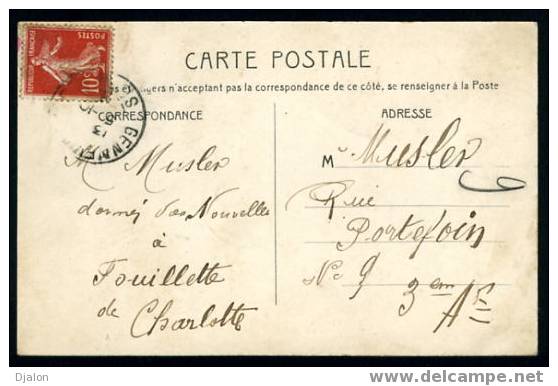 POSTES
REPUBLIQUE FRANÇAISE
10c
CARTE POSTALE
n'acceptant pas la correspondance de ce côté, se renseigner à la Poste
CORRESPONDANCE
ADRESSE
GENNE
13
M Musler
donnez des Nouvelles
à
Fouillette
de
Charlotte
M Musler
Rue
Portefoin
No 9 3em Art
Djalon
www.delcampe.net